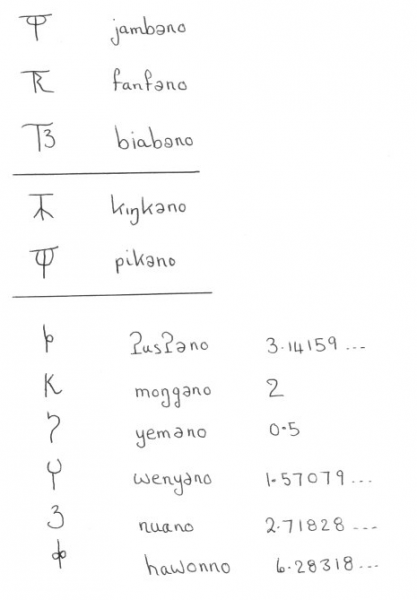 jambəno
fanfəno
biabəno
kıŋkəno
pikəno
ʔusʔəno 3·14159...
moŋgəno 2
yeməno 0·5
wenyəno 1·57079...
nuəno 2·71828...
hawonno 6·28318...